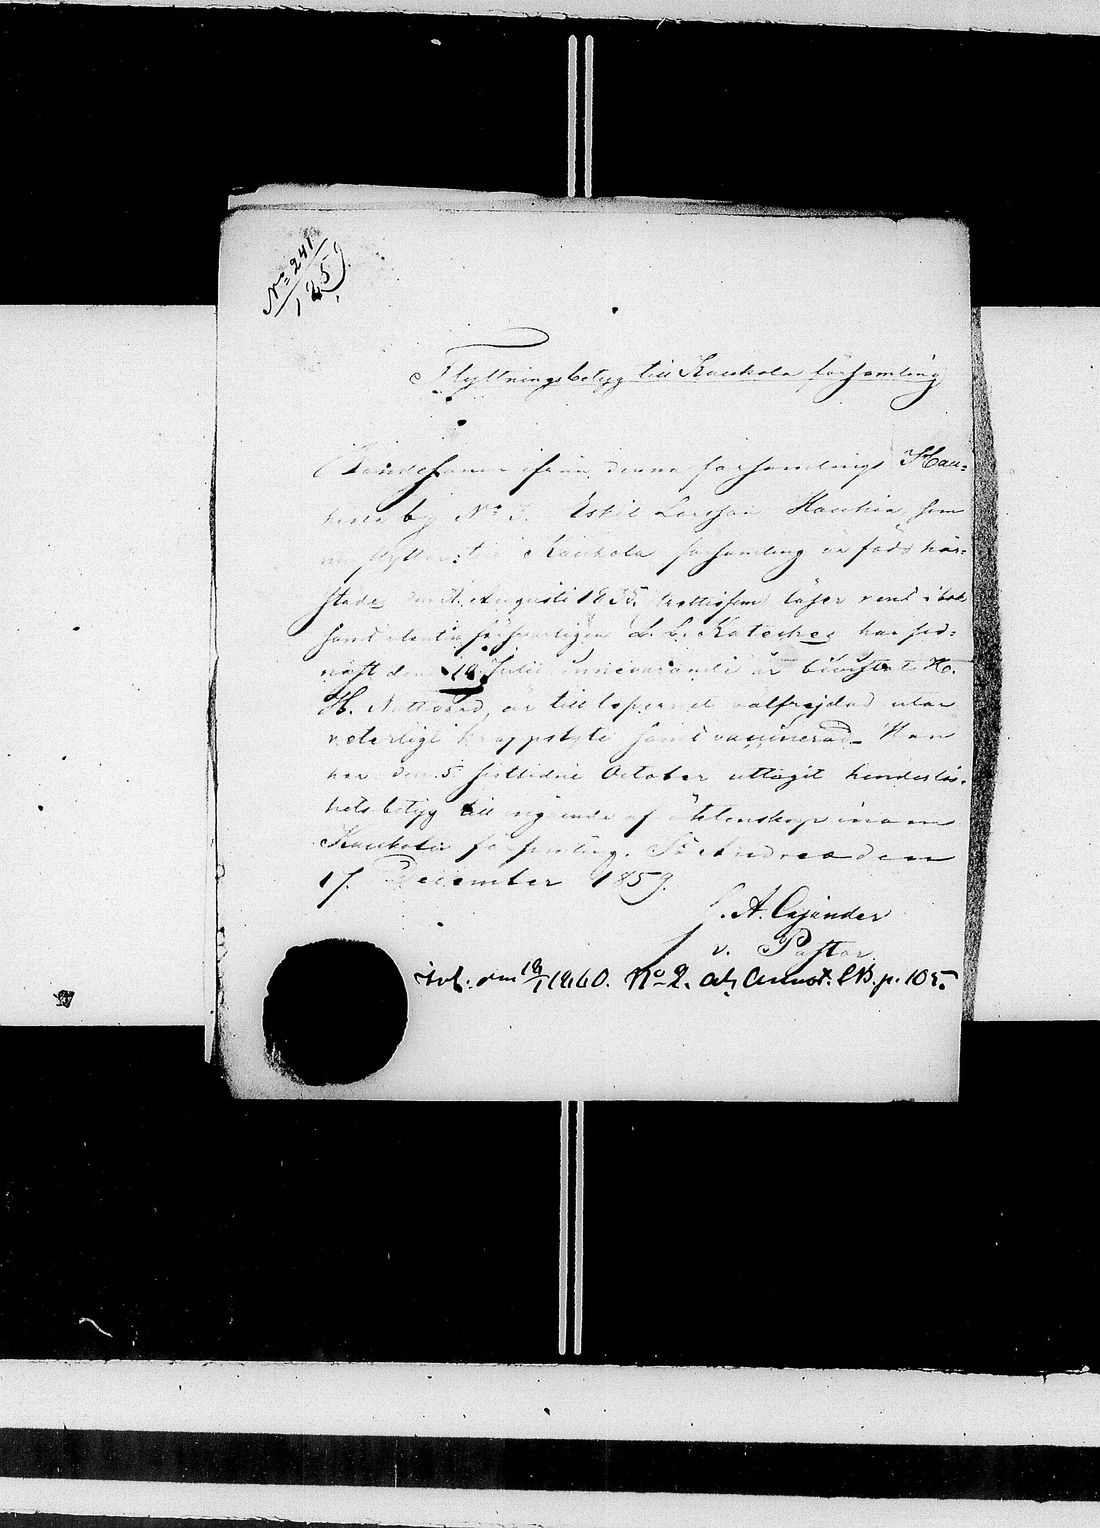 No 241
1859.
Flyttningsbetyg till Kaukola församling
Bondesonen ifrån denna församlings Hau=
by No 3. Eskil Larsson Haukia, som
nu flyttar till Kaukola församling är född här=
städes den Augusti 1835. läser rent i bok
samt utantill L. L. Kateches har sed=
nast den 10 Julii innevarande år bivistat H.
H. Nattvard, är till välfrejdad utan
veterligt kroppslyte samt vaccinerad. Han
har den 5 sistlidne October uttagit hinderslös=
hets betyg till ingående af äktenskap inom
Kaukola församling. St Andreæ den
17 December 1859.
A. Cajander
v. Pastor.
1860. No 2. Annot. CB. p. 105.